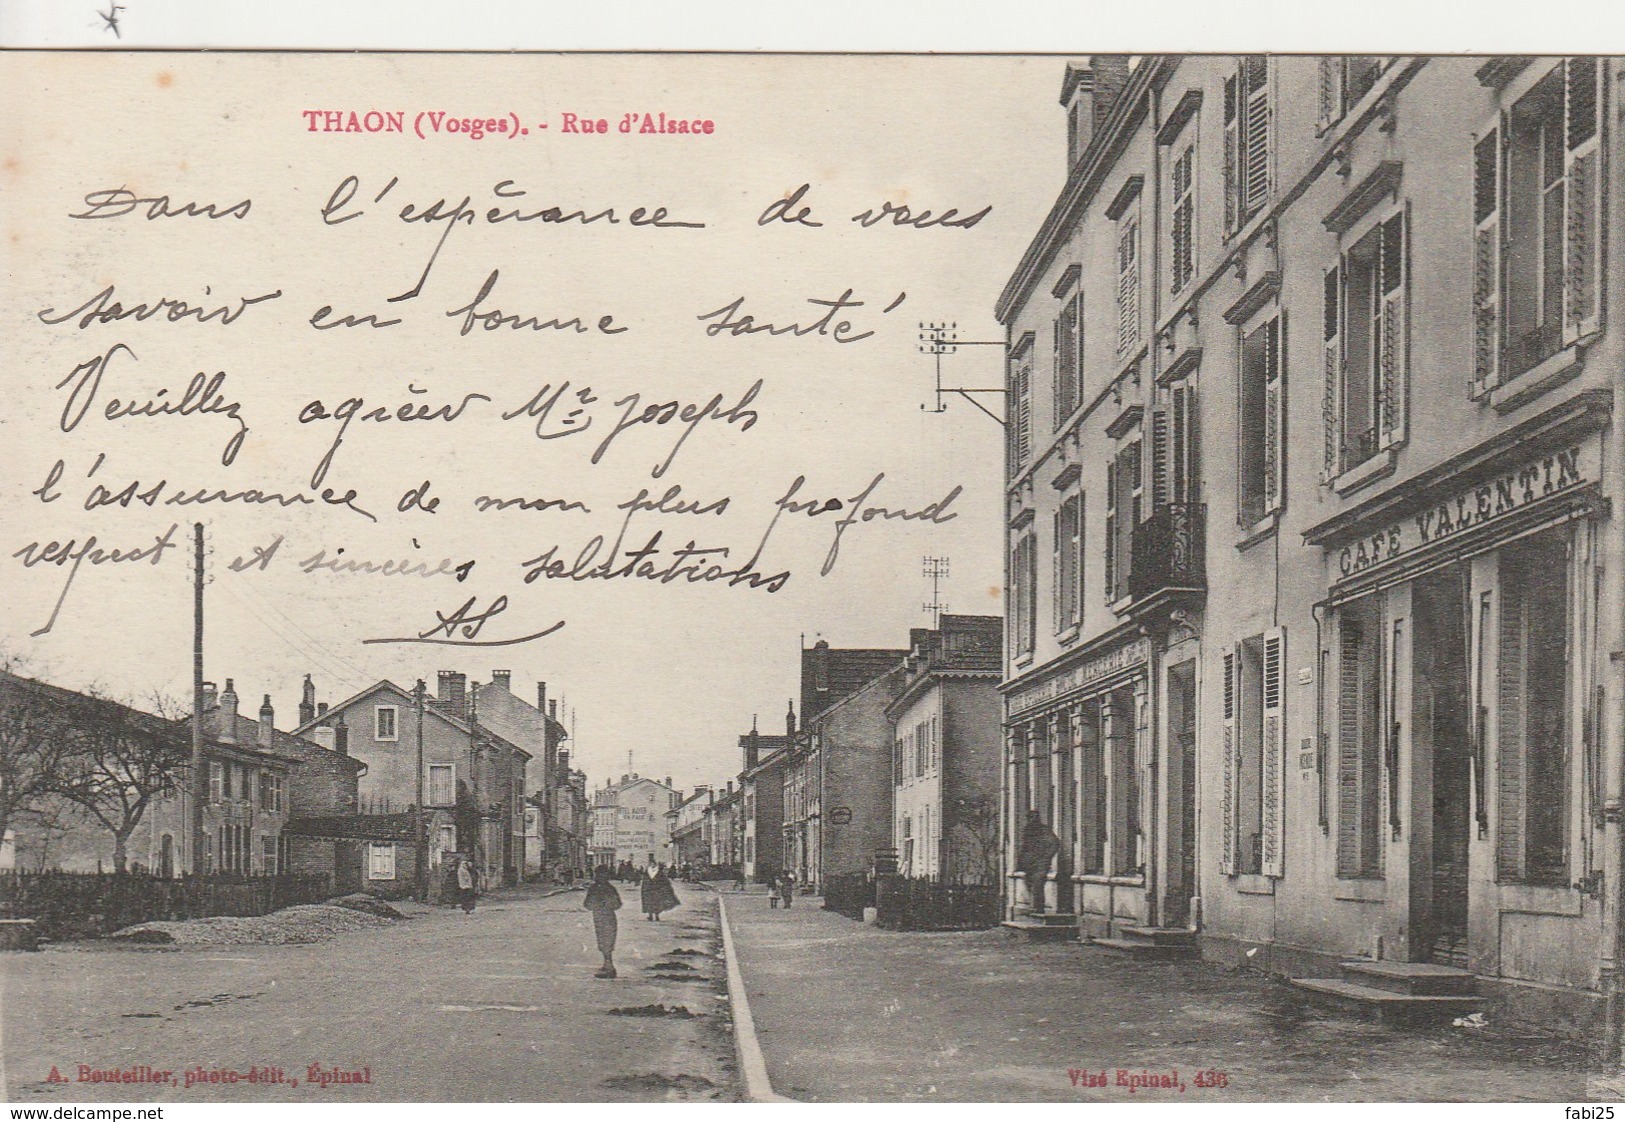 THAON (Vosges). - Rue d'Alsace
Dans l'espérance de vous
savoir en bonne santé
Veuillez agréer Mr Joseph
l'assurance de mon plus profond
respect et sincères salutations
AS
CAFE VALENTIN
A. Bouteiller, photo-édit., Épinal
Visé Epinal, 436
www.delcampe.net
fabi25